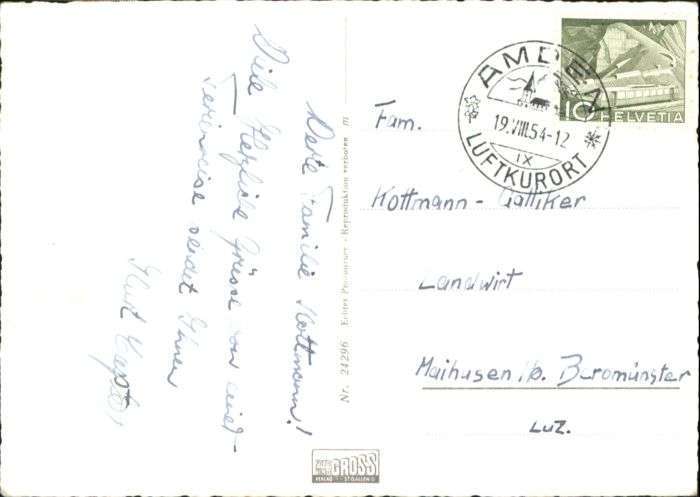 Werte Familie Kottmann!
Viele Herzliche Grüsse von einer
Ferienreise sendet Ihnen
Nr. 24296 Echtes Photo - Reproduktion verboten
GROSS
VERLAG ST. GALLEN
HELVETIA
10
AMDEN
19.VIII.54-12
IX
LUFTKURORT
Fam.
Kottmann - Galliker
Landwirt
Maihusen b. Beromünster
Luz.